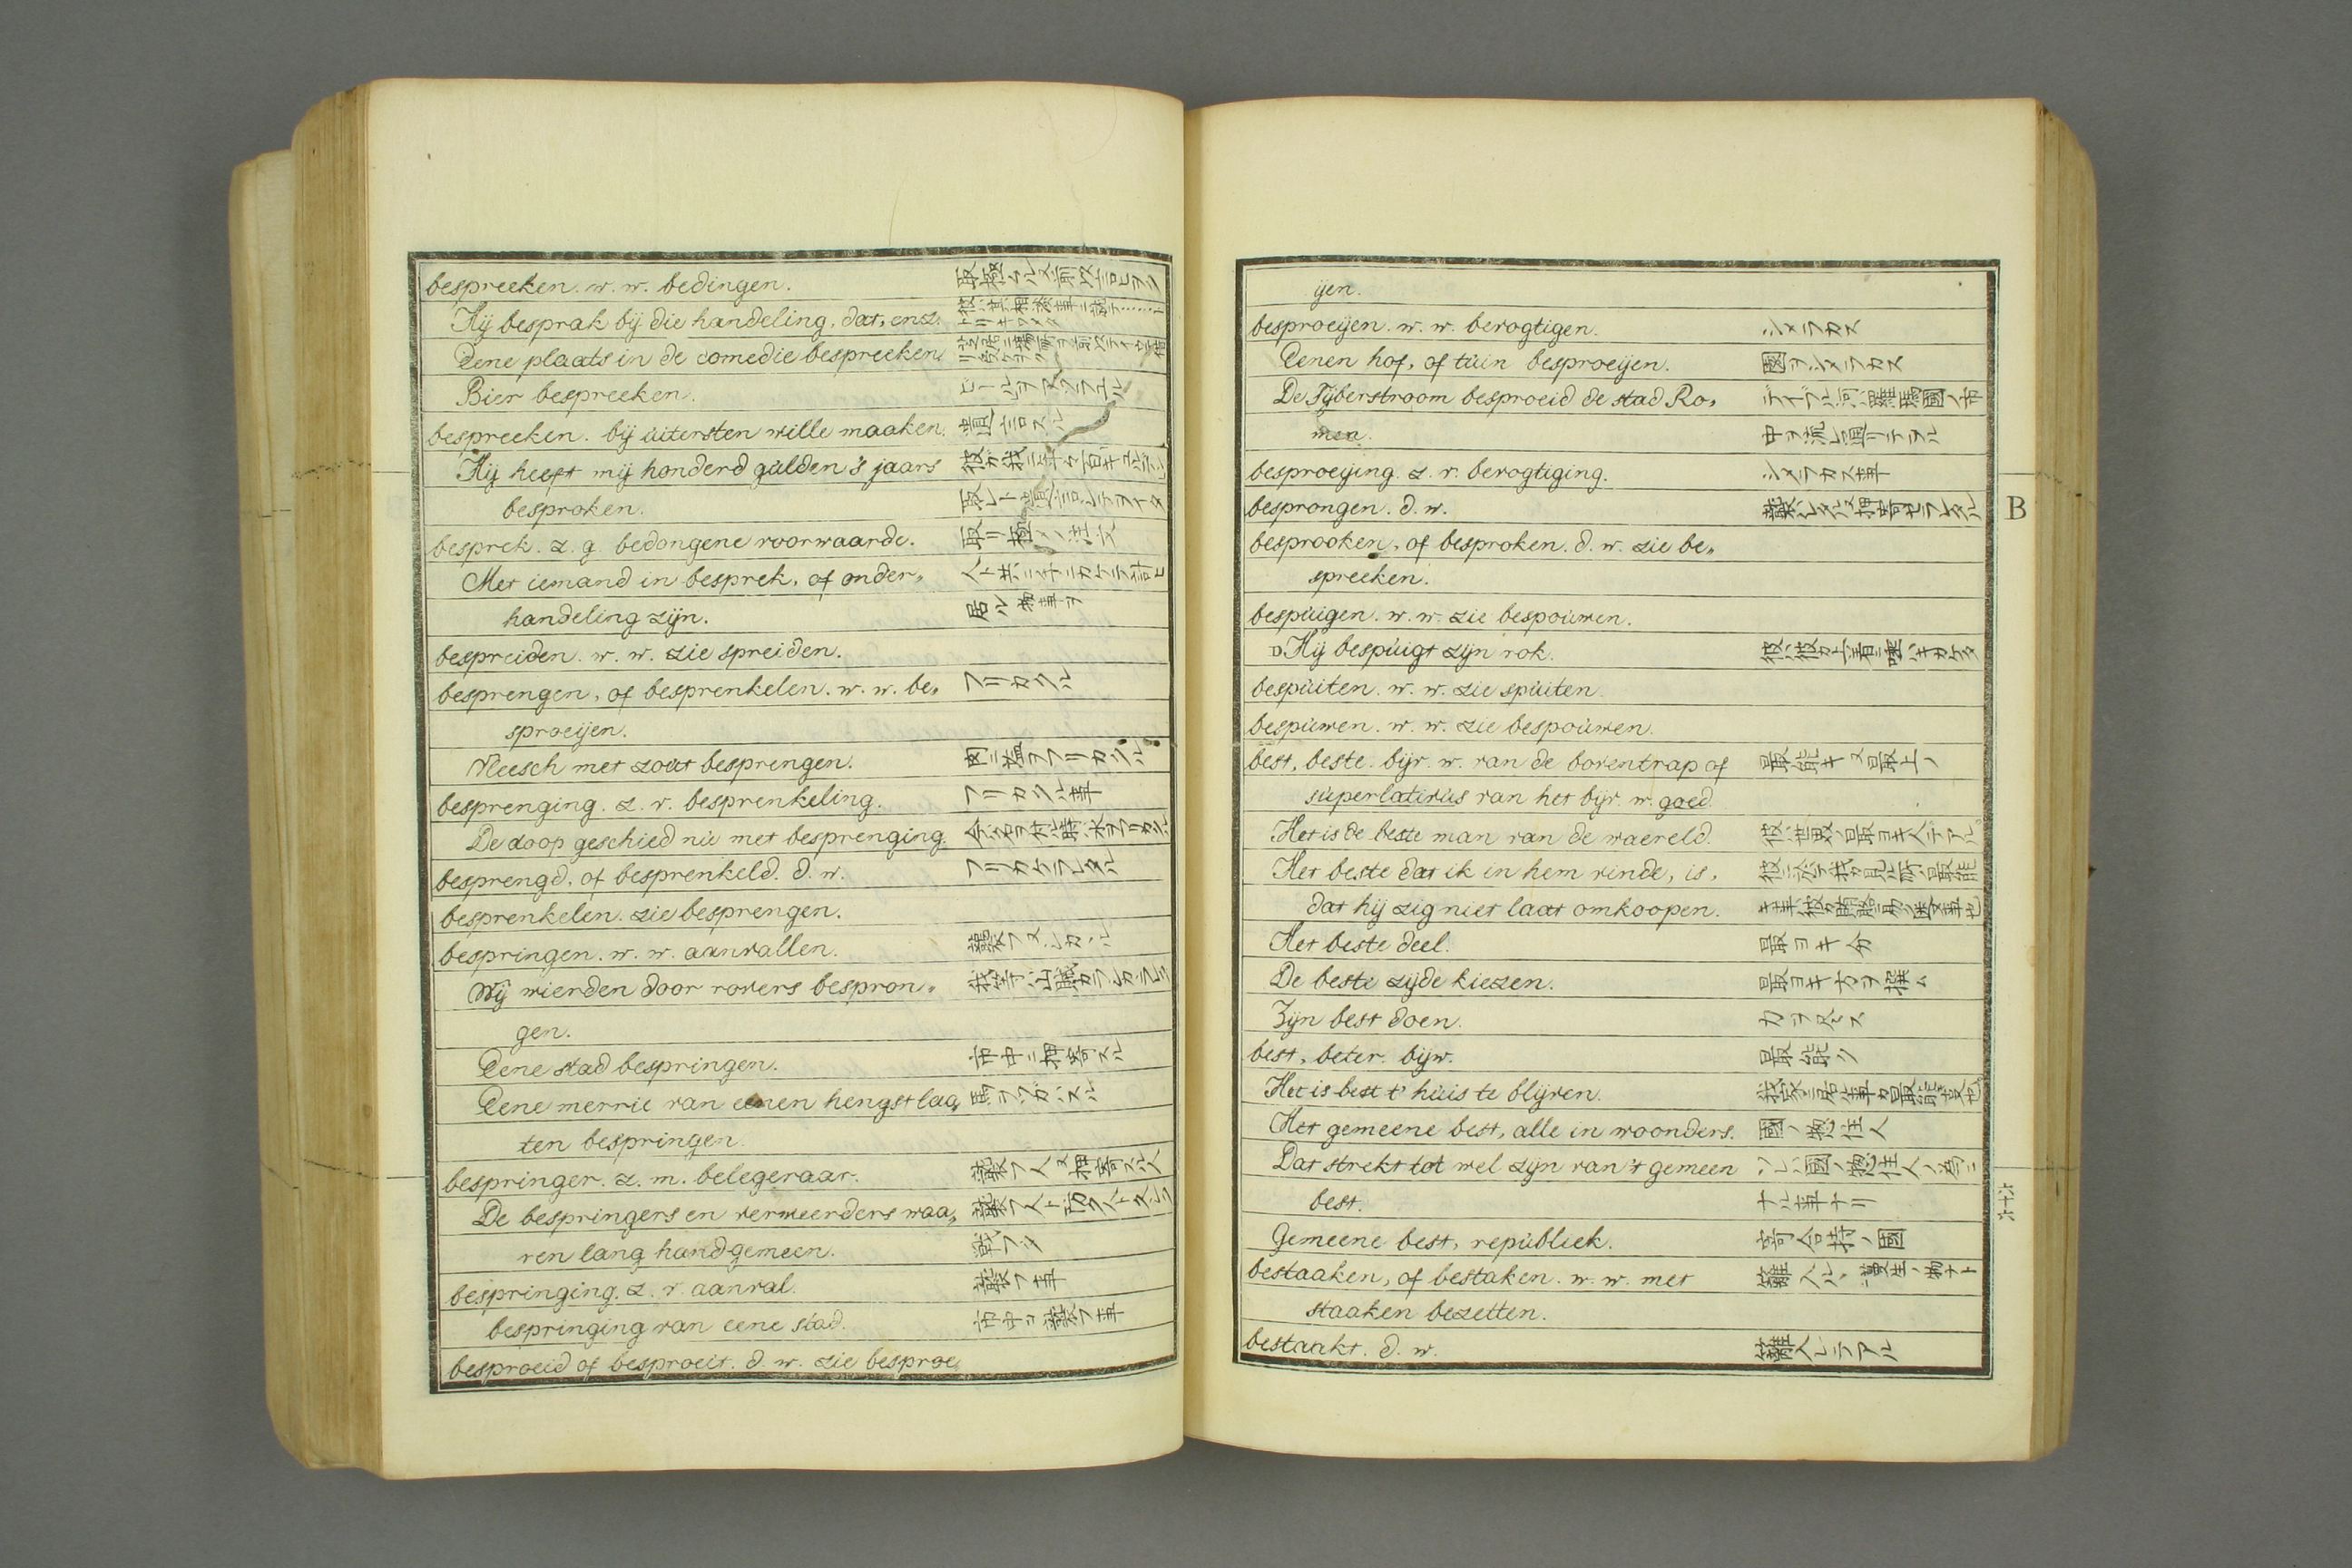 bespreeken. w. w. bedingen. 取極ムル又前以言ヒヲク
Hij besprak bij die handeling, dat, enz.
Eene plaats in de comedie bespreeken
Bier bespreeken.
bespreeken. bij uitersten wille maaken. 遺言スル
Hij heeft mij honderd gulden 's jaars
besproken.
besprek. z. g. bedongene voorwaarde. 取リ極メノ注文
Met iemand in besprek, of onder„
handeling zijn.
bespreiden. w. w. zie spreiden.
besprengen, of besprenkelen. w. w. be„ フリカクル
sproeijen.
Vleesch met zout besprengen. 肉ニ塩ヲフリカクル
besprenging. z. v. besprenkeling. フリカクル事
De doop geschied nu met besprenging.
besprengd. of besprenkeld. d. w. フリカケラレタル
besprenkelen. zie besprengen.
bespringen. w. w. aanvallen.
Wij wierden door rovers bespron„
gen.
Eene stad bespringen. 市中ニ押寄スル
Eene merrie van eenen hengst laa„
ten bespringen.
bespringer. z. m. belegeraar. 襲フ人又押寄スル人
De bespringers en verweerders waa„
ren lang handgemeen. 戦フタ
bespringing. z. v. aanval. 襲フ事
bespringing van eene stad. 市中ヲ襲フ事
besproeid of besproeit. d. w. zie besproe„
ijen.
besproeijen. w. w. bevogtigen. シメラカス
Eenen hof, of tuin besproeijen. 園ヲシメラカス
De Tijberstroom besproeid de stad Ro„ テイブル河ハ羅馬國ノ市
men. 中ヲ流レ通リテヲル
besproeijing. z. v. bevogtiging. シメラカス事
besprongen. d. w. 襲レタル又押寄セラレタル
B
besprooken, of besproken. d. w. zie be„
spreeken.
bespuigen. w. w. zie bespouwen.
Hij bespuigt zijn rok.
bespuiten. w. w. zie spuiten.
bespuwen. w. w. zie bespouwen.
best, beste. bijv. w. van de boventrap of 最能キ又最上ノ
superlativus van het bijv. w. goed.
Het is de beste man van de waereld. 彼ハ世界ノ最ヨキ人デアル
Het beste dat ik in hem vinde, is,
dat hij zig niet laat omkoopen.
Het beste deel. 最ヨキ分
De beste zijde kiezen. 最ヨキ方ヲ撰ム
Zijn best doen. 力ヲ尽ス
best, beter. bijw. 最能ク
Het is best t' huis te blijven.
Het gemeene best, alle in woonders. 國ノ惣住人
Dat strekt tot wel zijn van 't gemeen ソレハ國ノ惣住人ノ為ニ
best. ナル事ナリ
Gemeene best, republiek. 寄合持ノ國
bestaaken, of bestaken. w. w. met
staaken bezetten.
bestaakt. d. w. 籬入レテアル
六十六